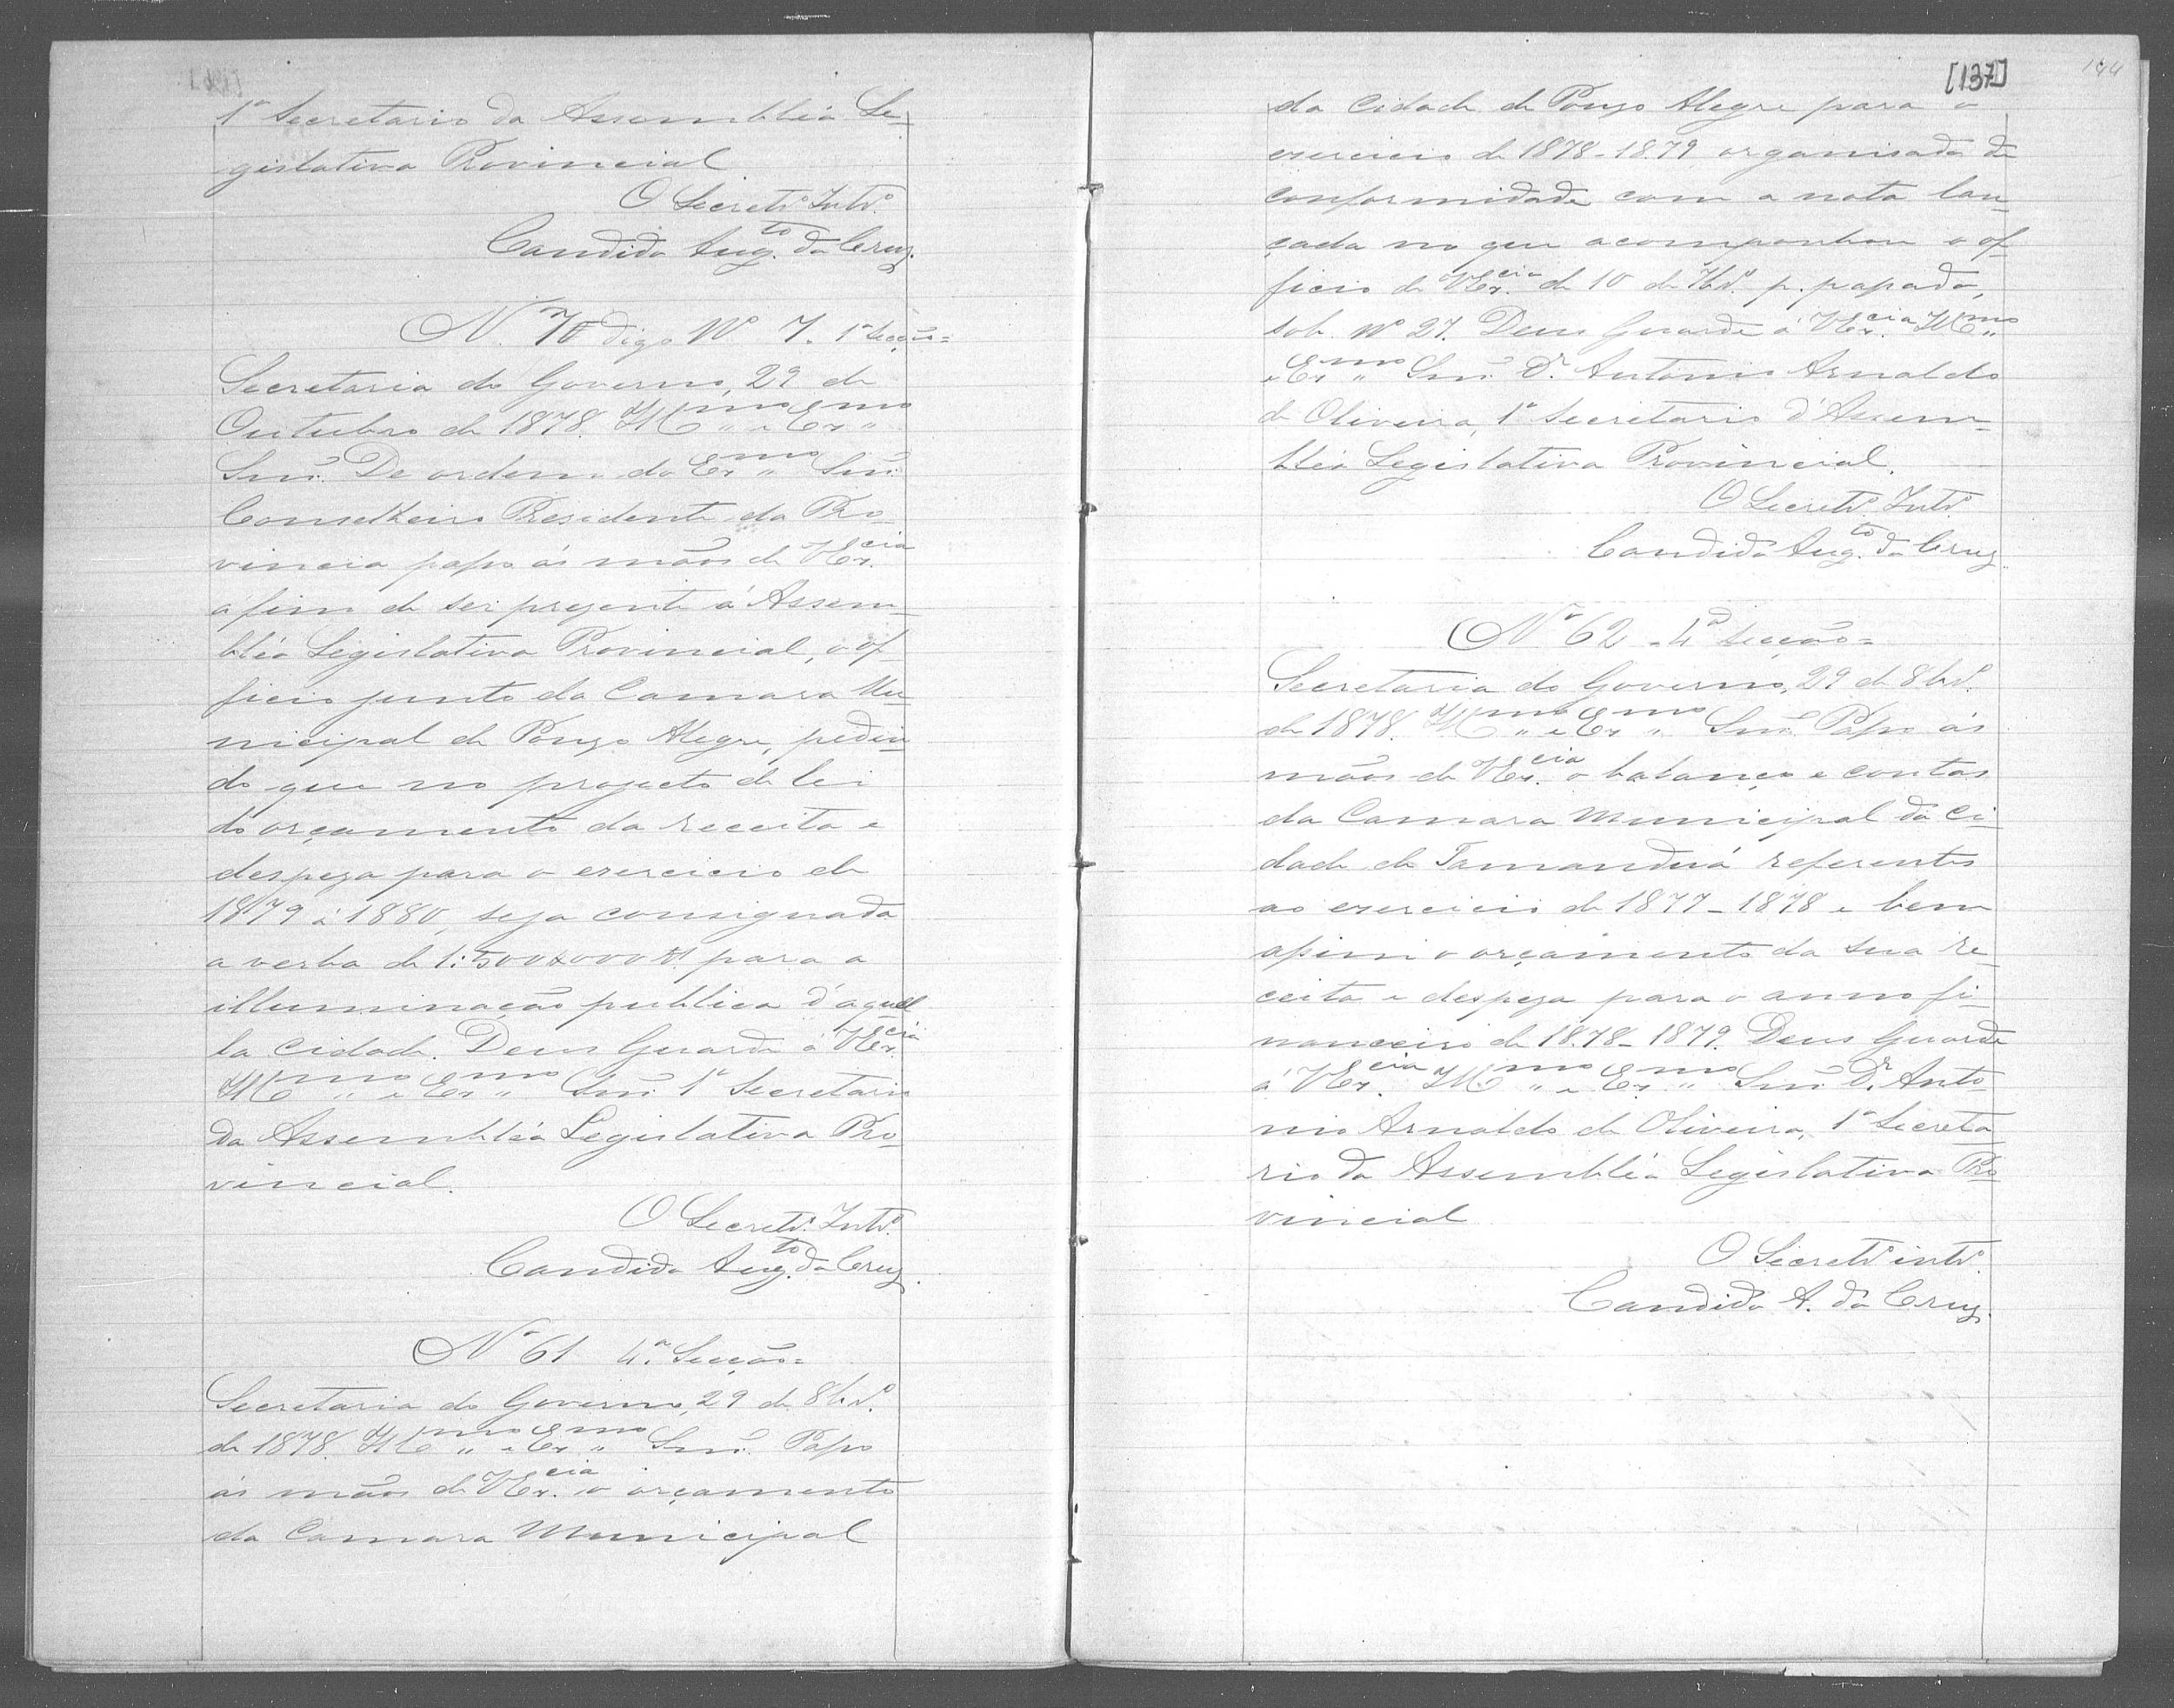 1º Secretario da Assembléa Le-
gislativa Provincial
O Secretrº. Intrº.
Candido Augto. da Cruz.
Nº 70 digo Nº 7. 1ª Secção=
Secretaria do Governo, 29 de
Outubro de 1878. Illmo e Exmo
Snr. De ordem do Exmo Snr.
Conselheiro Presidente da Pro-
vincia passo ás mãos de VExcia.
á fim de ser presente á Assem-
bléa Legislativa Provincial, o of-
ficio junto da Camara Mu-
nicipal de Pouso Alegre, pedin-
do que no projecto de lei
do orçamento da receita e
despeza para o exercicio de
1879 á 1880, seja consignada
a verba de 1:500$000 rs. para a
illuminação publica d'aquel
la Cidade. Deus Guarde á VExcia.
Illmo e Exmo Snr. 1º Secretario
da Assembléa Legislativa Pro-
vincial.
O Secretrº. Intrº.
Candido Augto. da Cruz.
Nº 61 4ª. Secção=
Secretaria do Governo, 29 de 8brº.
de 1878. Illmo e Exmo Snr. Passo
ás mãos de VExcia. o orçamento
da Camara Municipal
[137]
144
da Cidade de Pouso Alegre para o
exercicio de 1878-1879 organisada de
conformidade com a nota lan-
çada no que acompanhou o of-
ficio de VExcia. de 10 de 7brº. p. passado,
sob Nº 27. Deus Guarde á VExcia. Illmo
e Exmo Snr. Dr. Antonio Arnaldo
de Oliveira, 1º Secretario d'Assem-
bléa Legislativa Provincial.
O Secretrº. Intrº.
Candido Augto. da Cruz.
Nº 62 - 4ª Secção=
Secretaria do Governo, 29 de 8brº.
de 1878. Illmo e Exmo Snr. Passo ás
mãos de VExcia. o balanço e contas
da Camara Municipal da Ci-
dade de Tamanduá referentes
ao exercicio de 1877-1878 e bem
assim o orçamento da sua re-
ceita e despeza para o anno fi-
nanceiro de 1878-1879. Deus Guarde
á VExcia. Illmo e Exmo Snr. Dr. Anto-
nio Arnaldo de Oliveira, 1º Secreta
rio da Assembléa Legislativa Pro-
vincial
O Secretrº intrº.
Candido A. da Cruz.